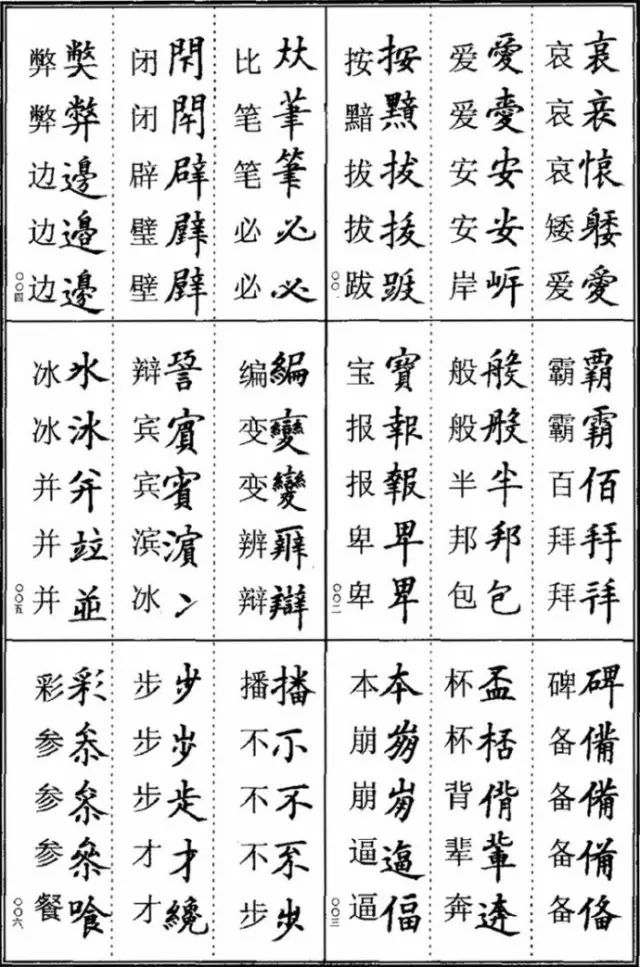 哀 哀
哀 哀
哀 㤥
矮 躷
爱 愛
爱 愛
爱 愛
安 安
安 安
岸 屽
按 按
黯 黯
拔 拔
拔 拔
跋
〇〇一
霸 覇
霸 霸
百 佰
拜 拜
拜 拜
般 般
般 般
半 半
邦 邦
包 包
宝 寶
报 報
报 報
卑 卑
卑 卑
〇〇二
碑 碑
备 備
备 備
备 備
备 俻
杯 盃
杯 桮
背 偝
辈 輩
奔 逩
本 夲
崩
崩
逼 逼
逼 偪
〇〇三
比 夶
笔 茟
笔 筆
必 必
必 必
闭 閇
闭 閇
辟 辟
璧
壁
弊
弊 弊
边 邊
边 邊
边 邊
〇〇四
编 編
变 變
变 變
辨
辩 辯
辩
宾 賔
宾 賓
滨 濵
冰 冫
冰 氷
冰 冰
并 并
并 竝
并 並
〇〇五
播 播
不
不 不
不
步
步 步
步 歩
步
才 才
才 纔
彩 彩
参
参
参
餐 飡
〇〇六